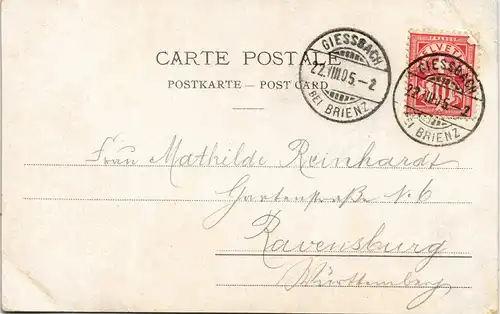 CARTE POSTALE
POSTKARTE — POST CARD
GIESSBACH
22.VIII.05.-2
BEI BRIENZ
FRANCO
HELVETIA
10
GIESSBACH
22.VIII.05.-2
BEI BRIENZ
Frau Mathilde Reinhardt
Gartenstraße N. 6
Ravensburg
Württemberg